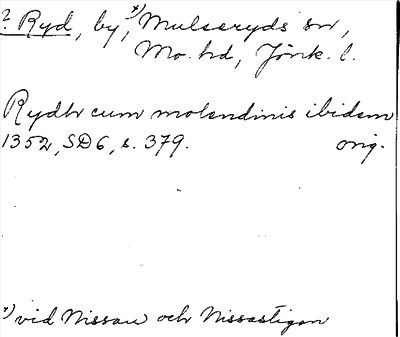 ? Ryd, by, *) Mulseryds sn,
Mo hd, Jönk. l.
Rydh cum molendinis ibidem
1352, SD6, s. 379. orig.
*) vid Nissan och Nissastigen